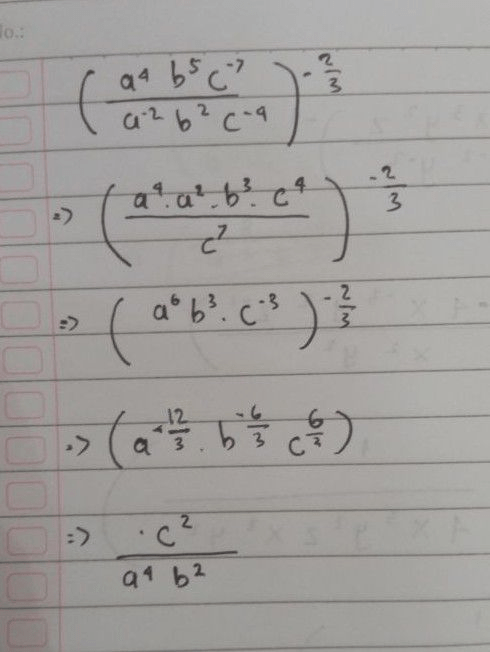 No.:
( a⁴ b⁵ c⁻⁷ / a⁻² b² c⁻⁴ )^(-2/3)
=> ( a⁴ . a² . b³ . c⁴ / c⁷ )^(-2/3)
=> ( a⁶ b³ . c⁻³ )^(-2/3)
=> ( a^(-12/3) . b^(-6/3) c^(6/3) )
=> c² / a⁴ b²